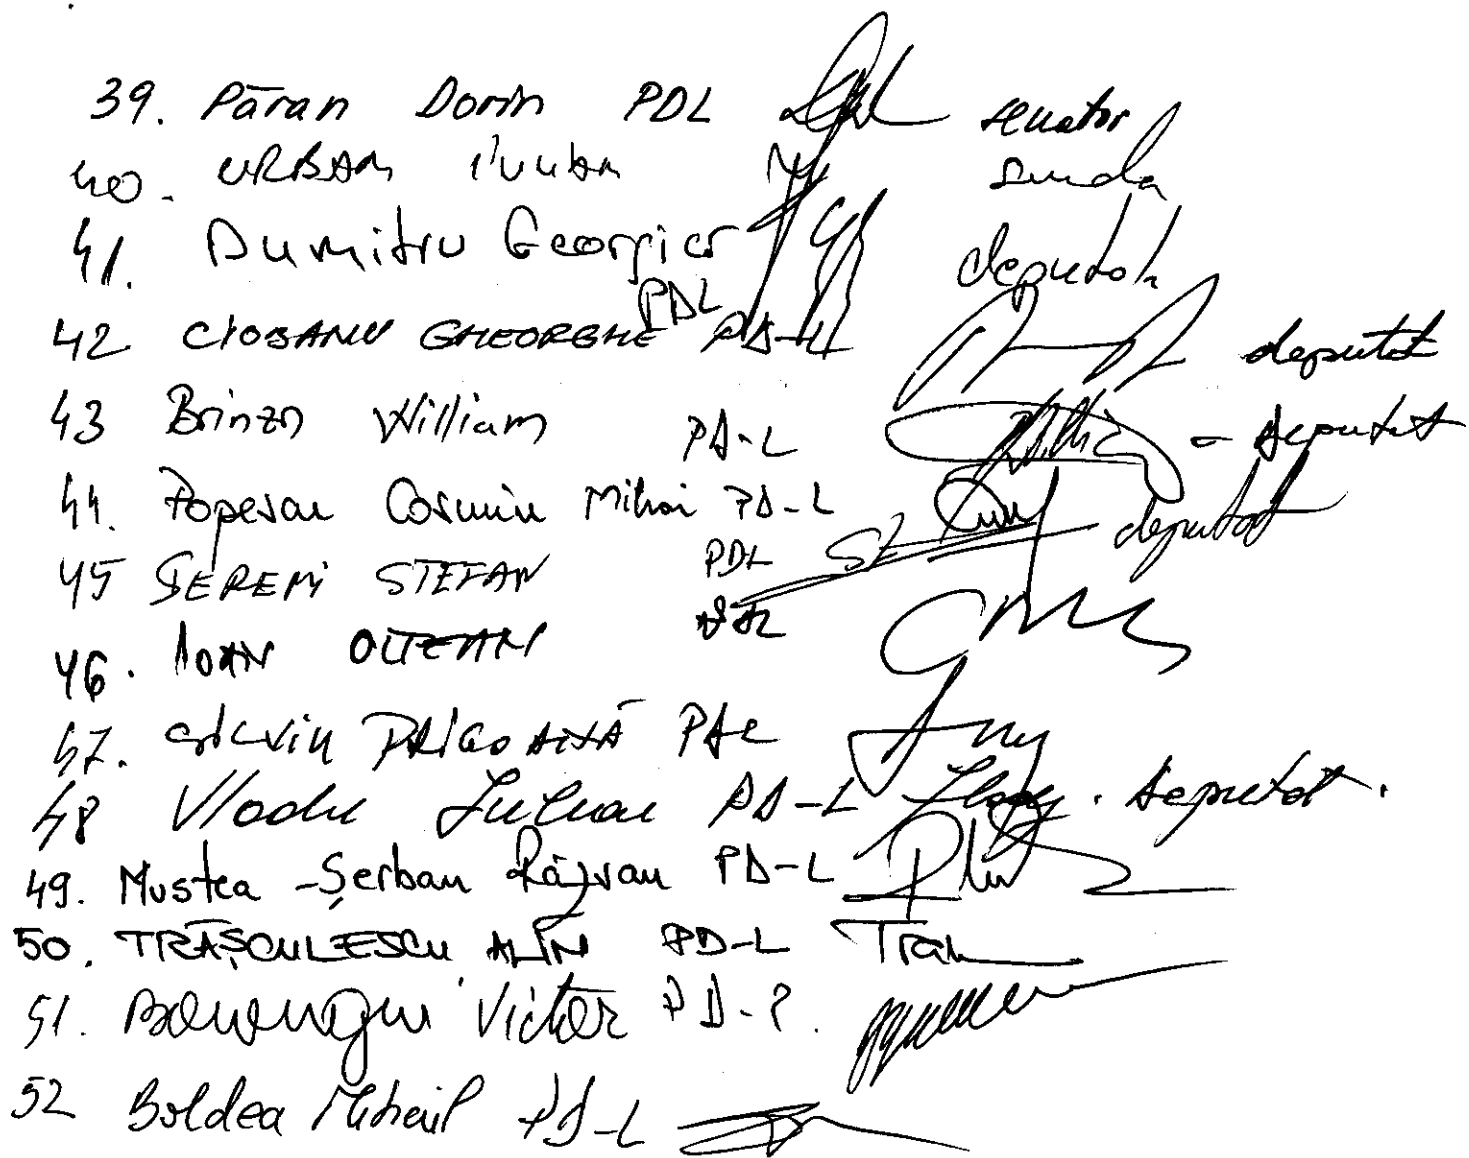 39. Păran Dorin PDL senator
40. URBAN Iulian
41. Dumitru Georgică deputat
PDL
42 CIOBANU GHEORGHE PD-L deputat
43 Brînză William PD-L - deputat
44. Popescu Cosmin Mihai PD-L deputat
45 ȘEREMI STEFAN PDL
46. IOAN OLTEAN
47. SILVIU PRIGOANĂ PDL
48 Vladu Iulian PD-L deputat.
49. Mustea-Șerban Răzvan PD-L
50. TRĂȘCULESCU ALIN PD-L
51. Victor PD-L
52 Boldea Mihail PD-L